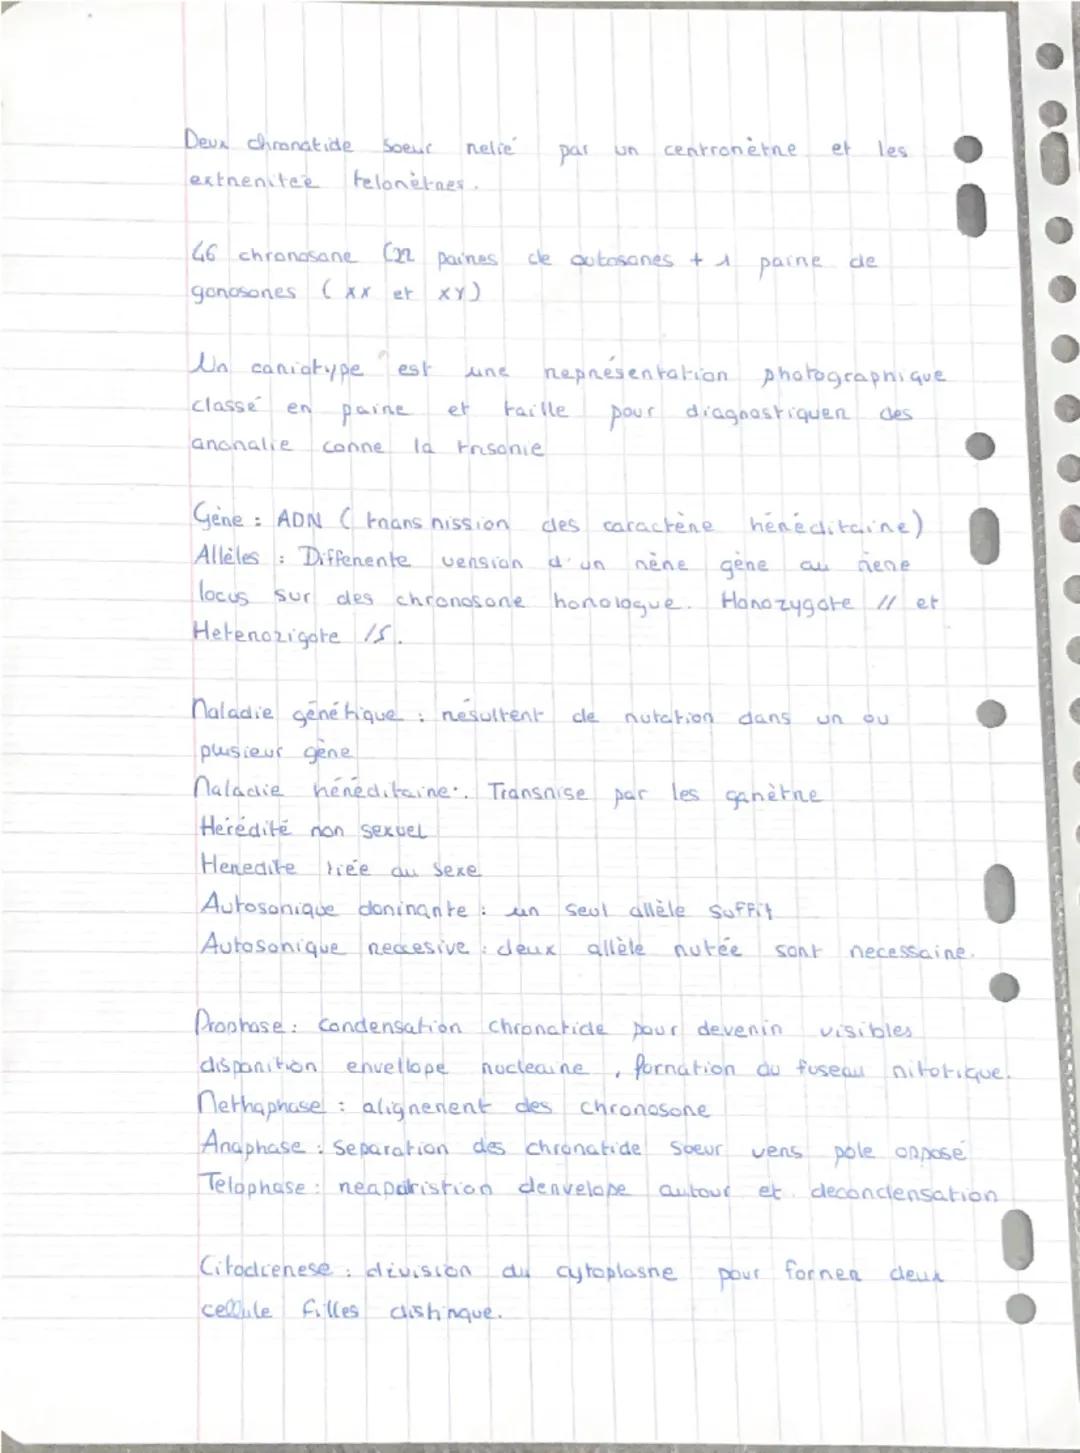 Deux chromatide soeur relié par un centromètre et les
extremitée telomètres.
46 chromosome (22 paires de autosomes + 1 paire de
gonosomes (XX et XY)
Un cariotype est une représentation photographique
classé en paire et taille pour diagnostiquer des
anomalie comme la trisomie
Gène : ADN ( transmission des caractère héréditaire)
Allèles : Differente version d'un même gène au même
locus sur des chromosome homologue. Homozygote // et
Heterozigote /S.
Maladie génétique : résultent de mutation dans un ou
plusieur gène
Maladie héréditaire : Transmise par les gamètme
Herédité non sexuel
Heredite liée au sexe
Autosomique dominante : un seul allèle suffit
Autosomique reccesive : deux allèle mutée sont necessaire.
Prophase : Condensation chromatide pour devenir visibles
disparition envellope nucleaire , formation du fuseau mitotique.
Methaphase : alignement des chromosome
Anaphase : Separation des chromatide soeur vers pole opposé
Telophase : reaparistion denvelope autour et decondensation
Citodienese : division du cytoplasme pour former deux
cellule filles distinque.